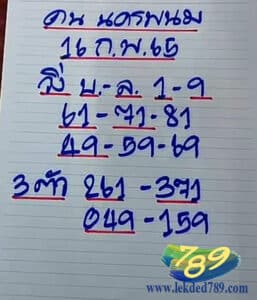 คน นครพนม
16 ก.พ.65
วิ่ง บ.-ล. 1-9
61-71-81
49-59-69
3ตัว 261-371
049-159
789
www.lekded789.com